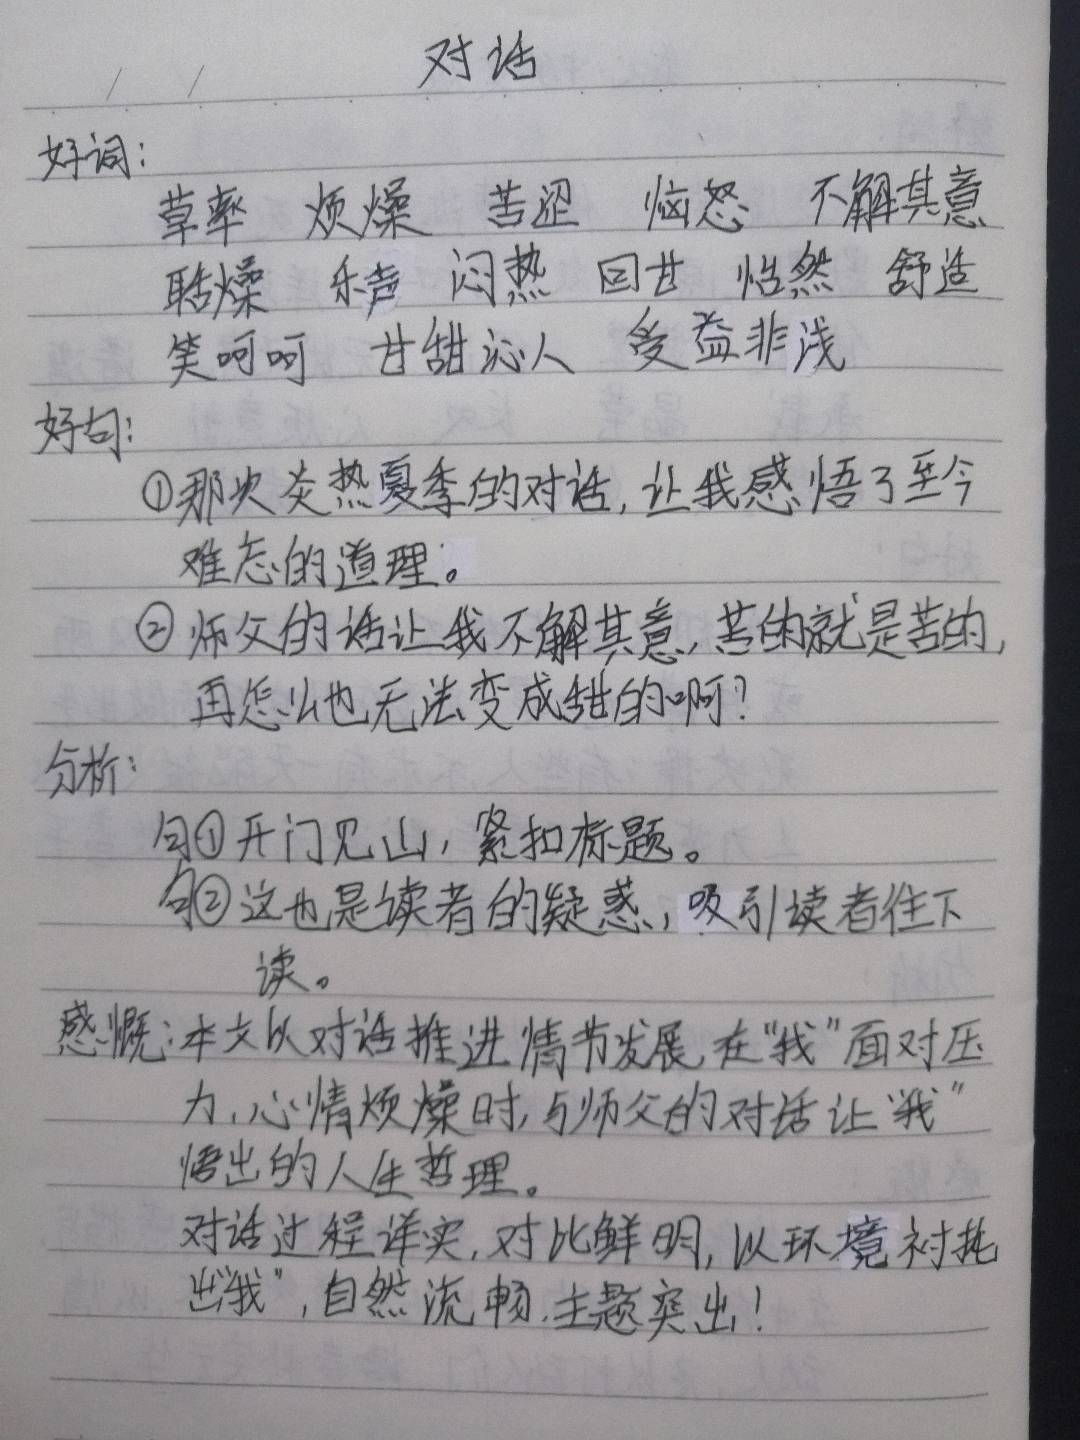 对话
好词：
草率 烦燥 苦涩 恼怒 不解其意
聒燥 乐声 闷热 回甘 恬然 舒适
笑呵呵 甘甜沁人 受益非浅
好句：
①那次炎热夏季的对话,让我感悟了至今
难忘的道理。
②师父的话让我不解其意,苦的就是苦的,
再怎么也无法变成甜的啊?
分析：
句①开门见山,紧扣标题。
句②这也是读者的疑惑,吸引读者往下
读。
感慨：本文以对话推进情节发展,在"我"面对压
力,心情烦燥时,与师父的对话让"我"
悟出的人生哲理。
对话过程详实,对比鲜明,以环境衬托
出"我",自然流畅,主题突出!